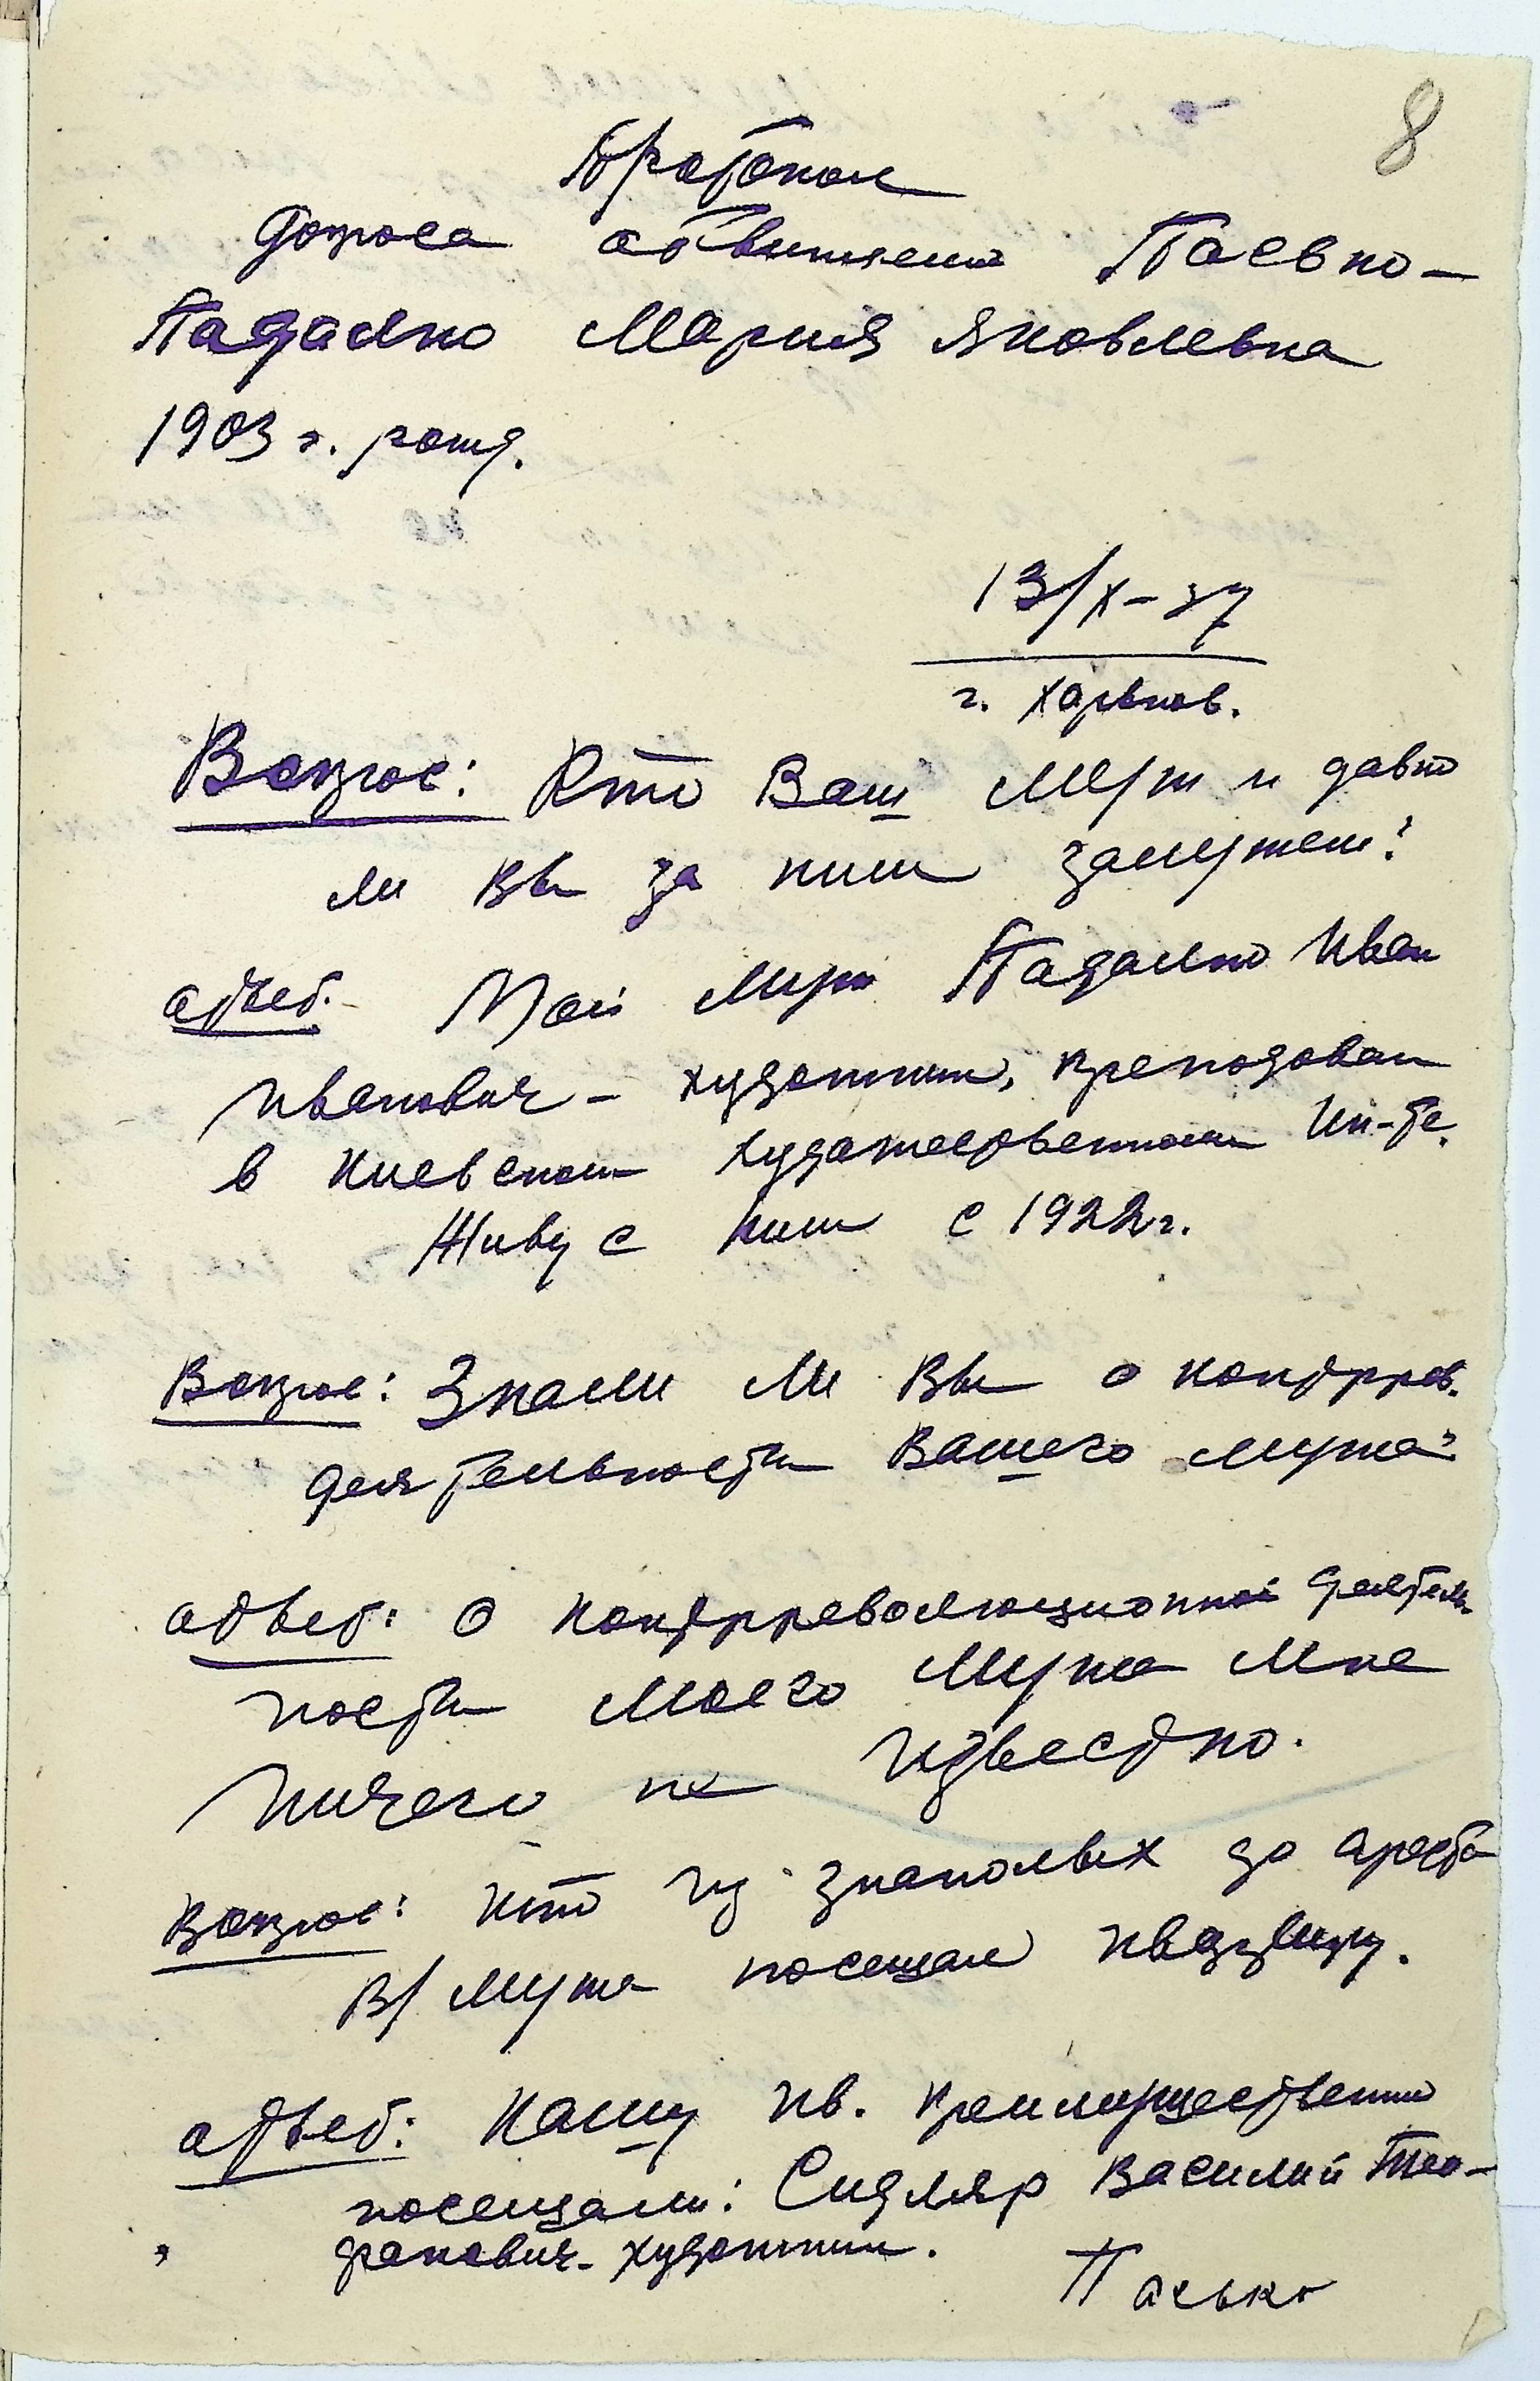 8
Протокол
допроса обвиняемой Пасько-
Падалко Мария Яковлевна
1903 г. рожд.
13/X-37
г. Харьков.
Вопрос: Кто Ваш муж и давно
ли Вы за ним замужем?
Ответ.- Мой муж Падалко Иван
Иванович - художник, преподавал
в Киевском художественном Ин-те.
Живу с ним с 1922г.
Вопрос: Знали ли Вы о контррев.
деятельности Вашего мужа?
Ответ: О контрреволюционной деятель-
ности моего мужа мне
ничего не известно.
Вопрос: Кто из знакомых до ареста
В/ мужа посещал квартиру.
Ответ: Нашу кв. преимущественно
посещали: Седляр Василий Тео-
фанович - художник.
Пасько